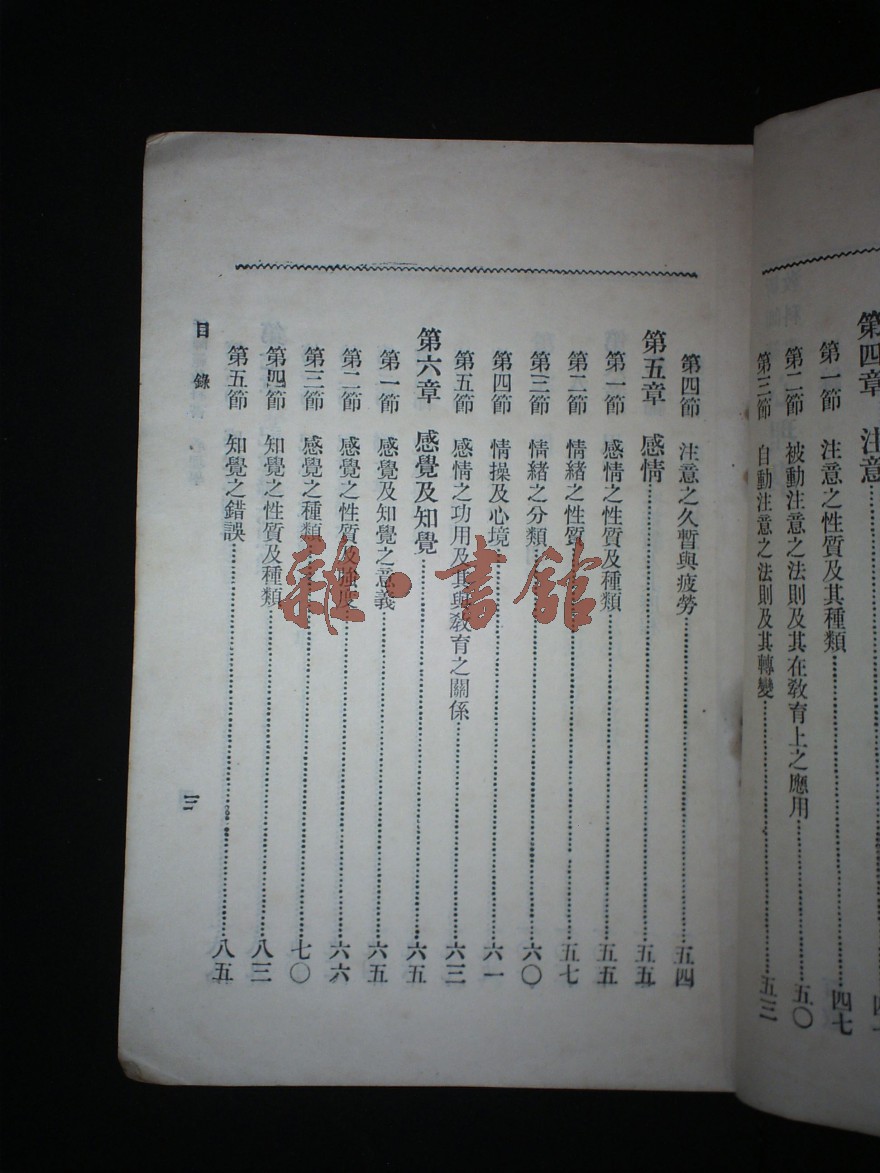 第四章 注意
第一節 注意之性質及其種類……四七
第二節 被動注意之法則及其在敎育上之應用……五〇
第三節 自動注意之法則及其轉變……五三
第四節 注意之久暫與疲勞……五四
第五章 感情……五五
第一節 感情之性質及種類……五五
第二節 情緒之性質……五七
第三節 情緒之分類……六〇
第四節 情操及心境……六一
第五節 感情之功用及其與敎育之關係……六三
第六章 感覺及知覺……六五
第一節 感覺及知覺之意義……六五
第二節 感覺之性質及強度……六六
第三節 感覺之種類……七〇
第四節 知覺之性質及種類……八三
第五節 知覺之錯誤……八五
目錄
三
雜·書館